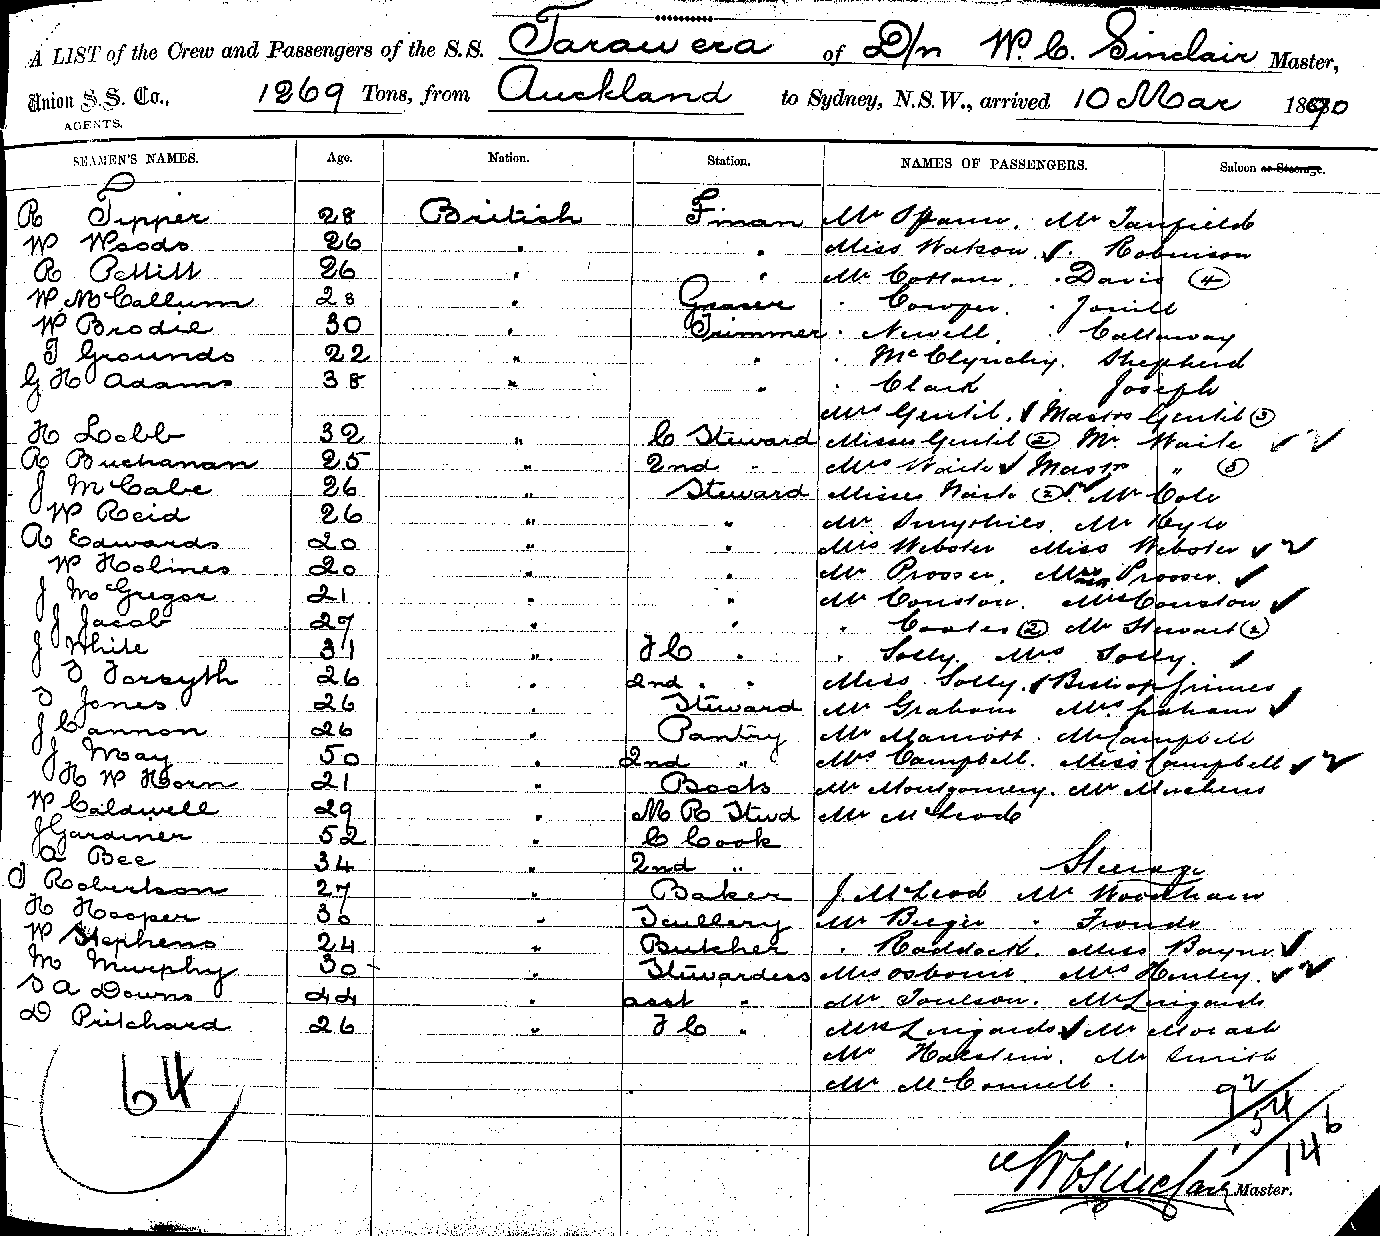 A LIST of the Crew and Passengers of the S.S. Tarawera of D/n W. C. Sinclair Master,
Union S.S. Co., 1269 Tons, from Auckland to Sydney, N.S.W., arrived 10 Mar 1890
AGENTS.
SEAMEN'S NAMES. Age. Nation. Station. NAMES OF PASSENGERS. Saloon or Steerage.
R Tipper 28 British Fman Mr Mr Tanfield
W Woods 26 " " Miss Watson Robinson
R Pettitt 26 " " Mr Cottam . Davis (4)
W McCallum 28 " Greaser " Cowper.
W Brodie 30 " Trimmer " Newell. Callaway
T Grounds 22 " " " McClynchy. Shepherd
G H Adams 38 " " " Clark " Joseph
Mrs Gentil. Masters Gentil (3)
H Lobb 32 " C Steward Misses Gentil (2) Mr Waite
R Buchanan 25 " 2nd " Mrs Waite Master " (3)
J McCabe 26 " Steward Misses Waite (2) Mr Cole
W Reid 26 " " Mr Mr Hyle
R Edwards 20 " " Mrs Webster Miss Webster
W Holmes 20 " " Mr Prosser, Mrs Prosser.
J McGregor 21 " " Mr Couston. Mrs Couston
J Jacob 27 " " " Coates (2) Mr Stewart (2)
J White 31 " F C " " Solly Mrs Solly.
T Forsyth 26 " 2nd " " Miss Solly. Bishop Grimes
T Jones 26 " Steward Mr Graham Mrs Graham
J Cannon 26 " Pantry Mr Marriott. Mr Campbell
J May 50 " 2nd " Mrs Campbell. Miss Campbell
H W Horn 21 " Boots Mr Montgomery. Mr
W Caldwell 29 " M R Stwd Mr McLeod
J Gardiner 52 " C Cook
A Bee 34 " 2nd " Steerage
T Robertson 27 " Baker J. McLeod Mr Woodham
H Hooper 30 " Scullery Mr "
W Stephens 24 " Butcher " Raddock. Miss Bayne
M Murphy 30 " Stewardess Mrs Osborne Mrs Henley.
S A Downs 44 " asst " Mr Toulson. Mr Lingards
D Pritchard 26 " F C " Mrs Lingards Mr
Mr Mr Smith
Mr McConnell.
64
92
54
146
W C Sinclair Master.